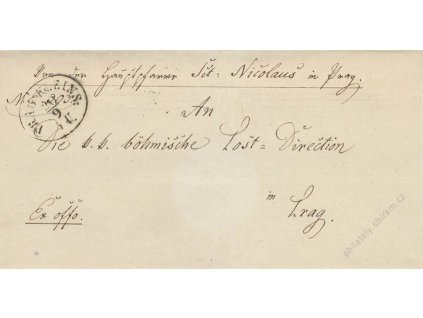 Von der Hauptpfarre Skt. Nicolaus in Prag.
An
Die k. k. böhmische Post=Direction
in
Prag.
Ex offo.
philately.sbiram.cz